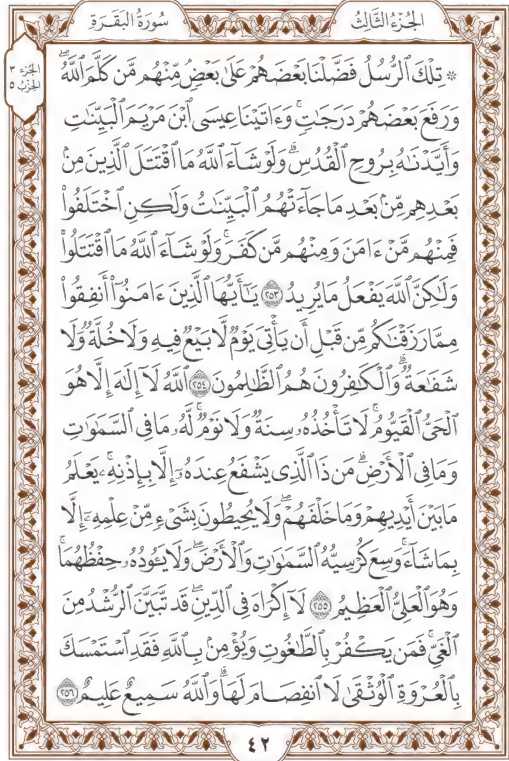 الجُزْءُ الثَّالِثُ
سُورَةُ البَقَرَةِ
الجزء ٣
الحزب ٥
۞ تِلْكَ ٱلرُّسُلُ فَضَّلْنَا بَعْضَهُمْ عَلَىٰ بَعْضٖۘ مِّنْهُم مَّن كَلَّمَ ٱللَّهُۖ
وَرَفَعَ بَعْضَهُمْ دَرَجَٰتٖۚ وَءَاتَيْنَا عِيسَى ٱبْنَ مَرْيَمَ ٱلْبَيِّنَٰتِ
وَأَيَّدْنَٰهُ بِرُوحِ ٱلْقُدُسِۗ وَلَوْ شَآءَ ٱللَّهُ مَا ٱقْتَتَلَ ٱلَّذِينَ مِنۢ
بَعْدِهِم مِّنۢ بَعْدِ مَا جَآءَتْهُمُ ٱلْبَيِّنَٰتُ وَلَٰكِنِ ٱخْتَلَفُواْ
فَمِنْهُم مَّنْ ءَامَنَ وَمِنْهُم مَّن كَفَرَۚ وَلَوْ شَآءَ ٱللَّهُ مَا ٱقْتَتَلُواْ
وَلَٰكِنَّ ٱللَّهَ يَفْعَلُ مَا يُرِيدُ ٢٥٣ يَٰٓأَيُّهَا ٱلَّذِينَ ءَامَنُوٓاْ أَنفِقُواْ
مِمَّا رَزَقْنَٰكُم مِّن قَبْلِ أَن يَأْتِيَ يَوْمٞ لَّا بَيْعٞ فِيهِ وَلَا خُلَّةٞ وَلَا
شَفَٰعَةٞۗ وَٱلْكَٰفِرُونَ هُمُ ٱلظَّٰلِمُونَ ٢٥٤ ٱللَّهُ لَآ إِلَٰهَ إِلَّا هُوَ
ٱلْحَيُّ ٱلْقَيُّومُۚ لَا تَأْخُذُهُۥ سِنَةٞ وَلَا نَوْمٞۚ لَّهُۥ مَا فِي ٱلسَّمَٰوَٰتِ
وَمَا فِي ٱلْأَرْضِۗ مَن ذَا ٱلَّذِي يَشْفَعُ عِندَهُۥٓ إِلَّا بِإِذْنِهِۦۚ يَعْلَمُ
مَا بَيْنَ أَيْدِيهِمْ وَمَا خَلْفَهُمْۖ وَلَا يُحِيطُونَ بِشَيْءٖ مِّنْ عِلْمِهِۦٓ إِلَّا
بِمَا شَآءَۚ وَسِعَ كُرْسِيُّهُ ٱلسَّمَٰوَٰتِ وَٱلْأَرْضَۖ وَلَا يَـُٔودُهُۥ حِفْظُهُمَاۚ
وَهُوَ ٱلْعَلِيُّ ٱلْعَظِيمُ ٢٥٥ لَآ إِكْرَاهَ فِي ٱلدِّينِۖ قَد تَّبَيَّنَ ٱلرُّشْدُ مِنَ
ٱلْغَيِّۚ فَمَن يَكْفُرْ بِٱلطَّٰغُوتِ وَيُؤْمِنۢ بِٱللَّهِ فَقَدِ ٱسْتَمْسَكَ
بِٱلْعُرْوَةِ ٱلْوُثْقَىٰ لَا ٱنفِصَامَ لَهَاۗ وَٱللَّهُ سَمِيعٌ عَلِيمٌ ٢٥٦
٤٢